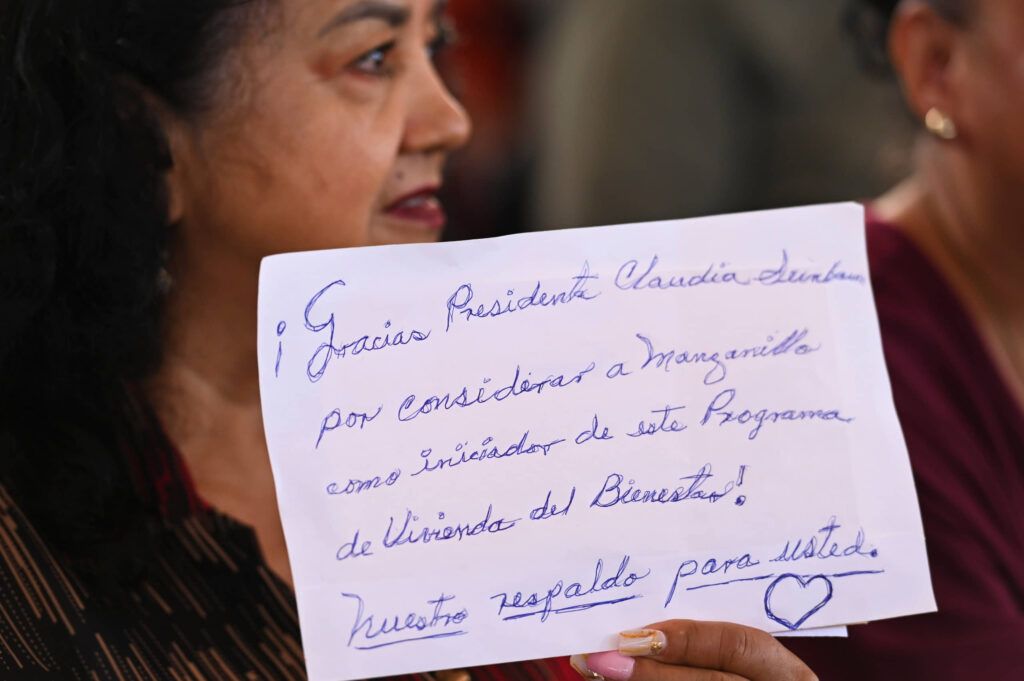 ¡Gracias Presidenta Claudia Seinbaum
por considerar a Manzanillo
como iniciador de este Programa
de Vivienda del Bienestar!
Nuestro respaldo para usted.